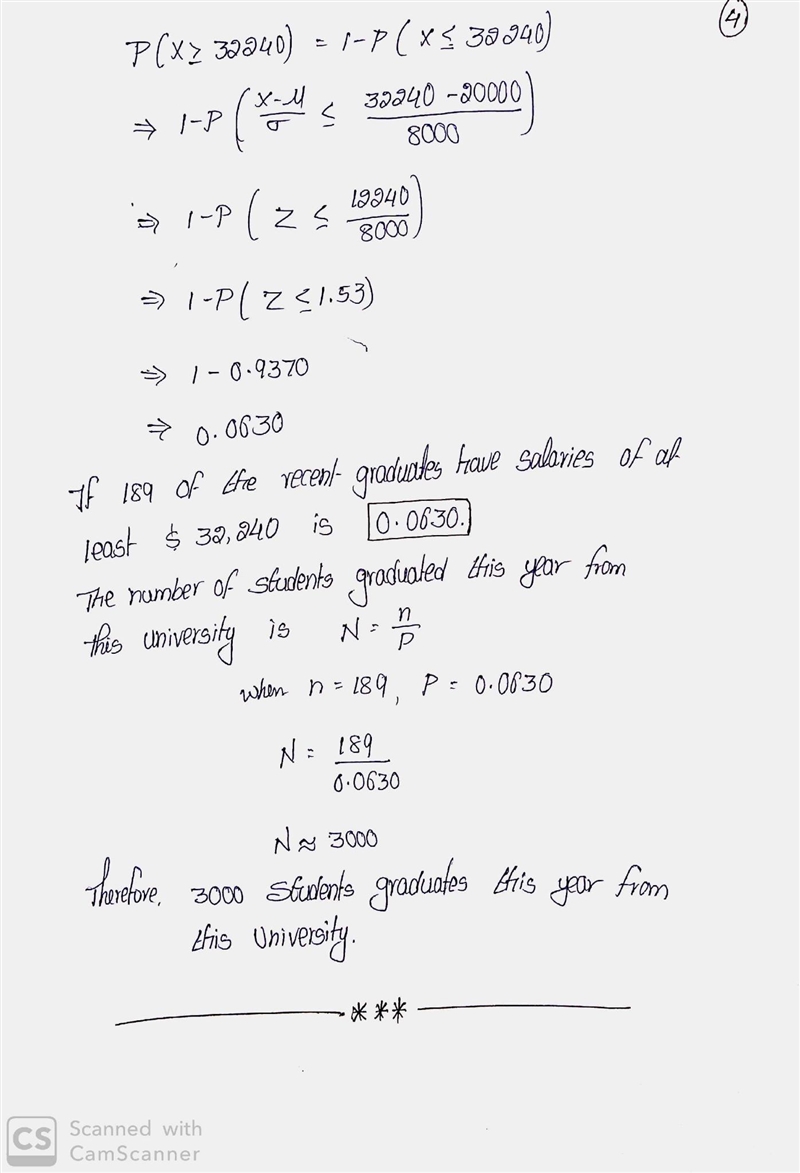 4
P(X ≥ 32240) = 1-P(X ≤ 32240)
⇒ 1-P(X-μ/σ ≤ 32240-20000/8000)
⇒ 1-P(Z ≤ 12240/8000)
⇒ 1-P(Z ≤ 1.53)
⇒ 1-0.9370
⇒ 0.0630
If 189 of the recent graduates have salaries of at
least $ 32,240 is 0.0630.
The number of students graduated this year from
this university is N = n/P
when n = 189, P = 0.0630
N = 189/0.0630
N ≈ 3000
Therefore, 3000 Students graduates this year from
this University.
***
CS Scanned with
CamScanner